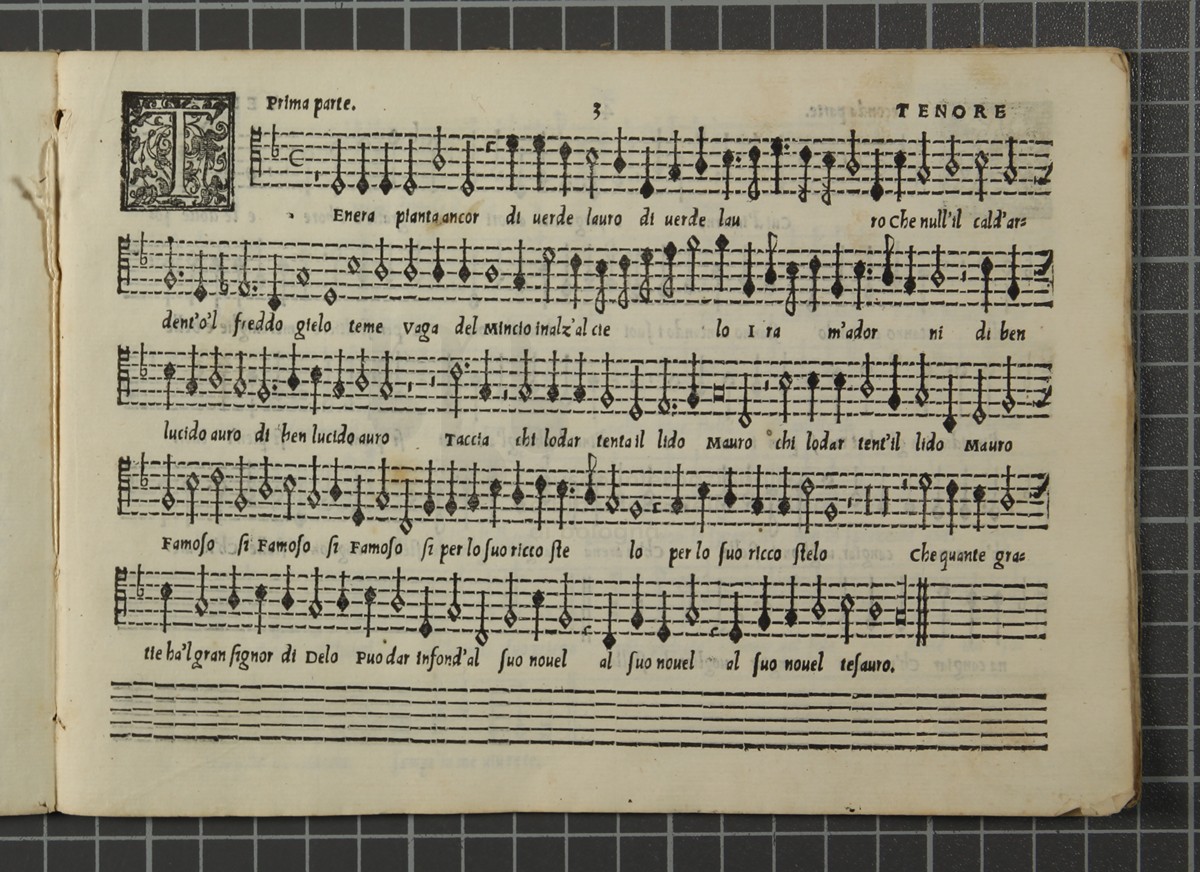 Prima parte. 3 TENORE
T Enera pianta ancor di uerde lauro di uerde lau ro Che null'il cald'ar=
dent'o'l freddo gielo teme Vaga del Mincio inalz'al cie lo I ra m'ador ni di ben
lucido auro di ben lucido auro Taccia chi lodar tenta il lido Mauro chi lodar tent'il lido Mauro
Famoſo ſi Famoſo ſi Famoſo ſi per lo ſuo ricco ſte lo per lo ſuo ricco ſtelo Che quante gra=
tie ha'l gran ſignor di Delo Puo dar infond'al ſuo nouel al ſuo nouel al ſuo nouel teſauro.